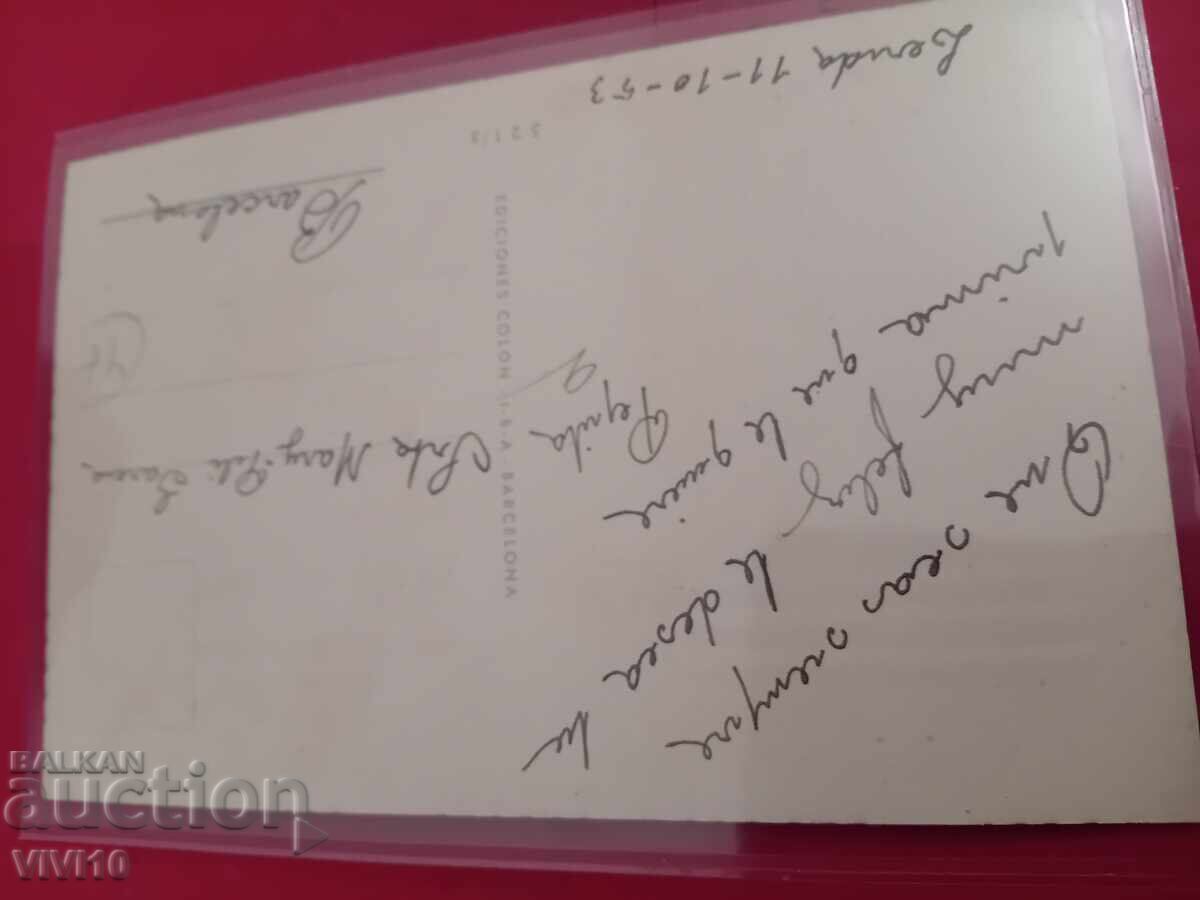 Lerida 11-10-53
Que seas siempre
muy feliz te desea tu
prima que te quiere
Pepita
EDICIONES COLON BARCELONA
Srta Mary-Pili
Barcelona
BALKAN
auction
VIVI10